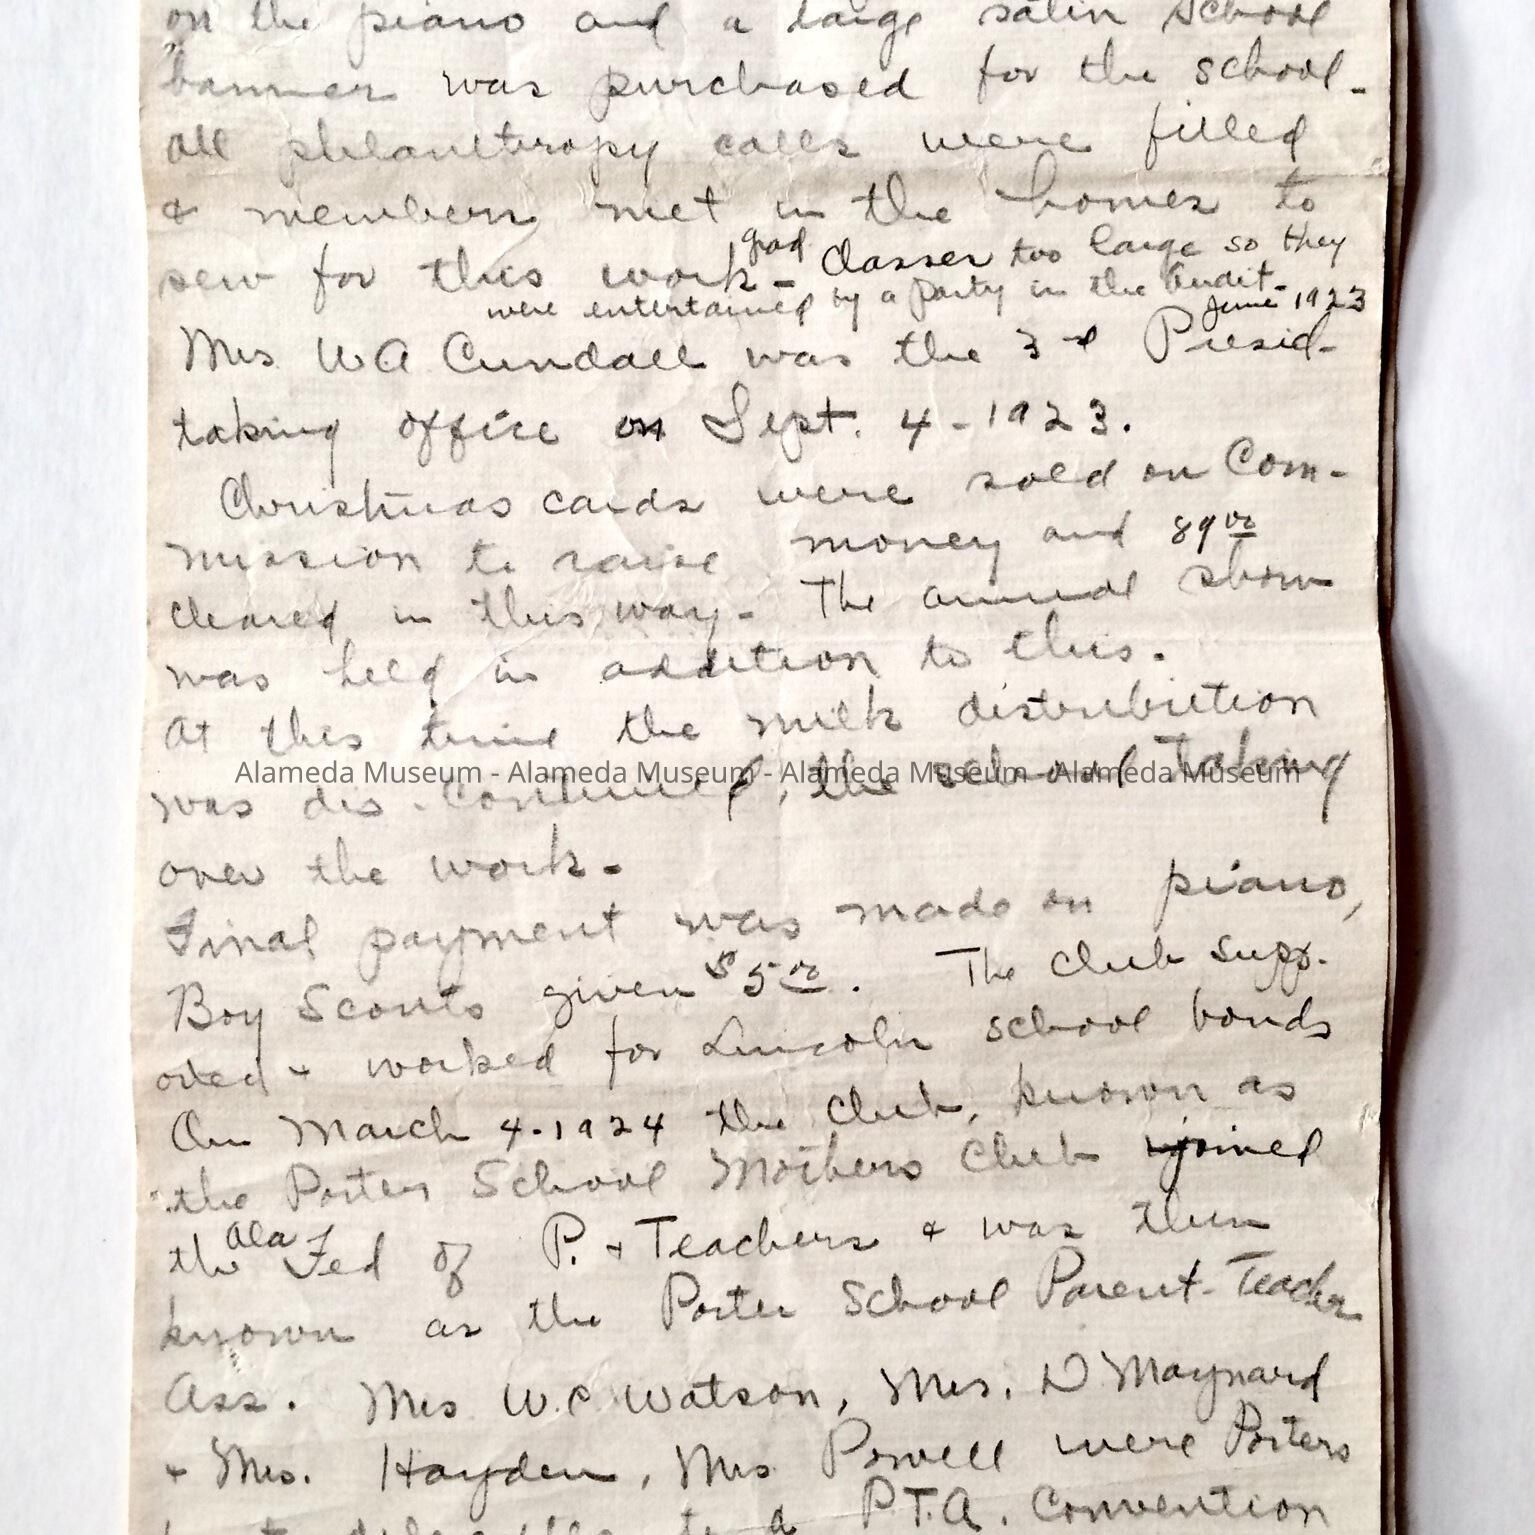 on the piano and a large satin school
banner was purchased for the school-
all philanthropy calls were filled
& members met in the homes to
sew for this work- grad classes too large so they
were entertained by a party in the Audit- June 1923
Mrs W A Cundall was the 3rd Presid-
taking office on Sept. 4-1923.
Christmas cards were sold on Com-
mission to raise money and 89 00
cleared in this way- The annual show
was held in addition to this.
At this time the milk distribution
Alameda Museum - Alameda Museum - Alameda Museum - Alameda Museum
was dis-continued, the school taking
over the work-
Final payment was made on piano,
Boy Scouts given $5 00. The club supp-
orted & worked for Lincoln school bonds
On March 4-1924 the club, known as
the Porter School Mothers Club joined
the Ala Fed of P. & Teachers & was then
known as the Porter School Parent-Teacher
Ass. Mrs W.C Watson, Mrs. D Maynard
& Mrs. Hayden, Mrs Powell were Porters
P.T.A. Convention